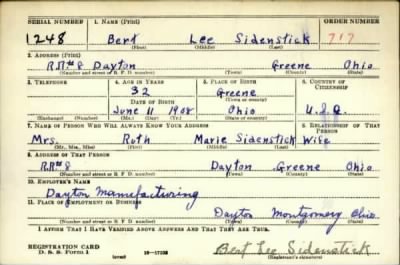 SERIAL NUMBER 1. NAME (Print) ORDER NUMBER
1248 Bert Lee Sidenstick 717
(First) (Middle) (Last)
2. ADDRESS (Print)
R.R.#8 Dayton Greene Ohio
(Number and street or R. F. D. number) (Town) (County) (State)
3. TELEPHONE 4. AGE IN YEARS 5. PLACE OF BIRTH 6. COUNTRY OF CITIZENSHIP
32 Greene
DATE OF BIRTH (Town or county)
June 11 1908 Ohio U.S.A.
(Exchange) (Number) (Mo.) (Day) (Yr.) (State or country)
7. NAME OF PERSON WHO WILL ALWAYS KNOW YOUR ADDRESS 8. RELATIONSHIP OF THAT PERSON
Mrs. Ruth Marie Sidenstick Wife
(Mr., Mrs., Miss) (First) (Middle) (Last)
9. ADDRESS OF THAT PERSON
R.R.#8 Dayton, Greene Ohio
(Number and street or R. F. D. number) (Town) (County) (State)
10. EMPLOYER'S NAME
Dayton Manufacturing
11. PLACE OF EMPLOYMENT OR BUSINESS
Dayton Montgomery Ohio
(Number and street or R. F. D. number) (Town) (County) (State)
I AFFIRM THAT I HAVE VERIFIED ABOVE ANSWERS AND THAT THEY ARE TRUE.
REGISTRATION CARD
D. S. S. Form 1 (over) 16-17105 Bert Lee Sidenstick
(Registrant's signature)